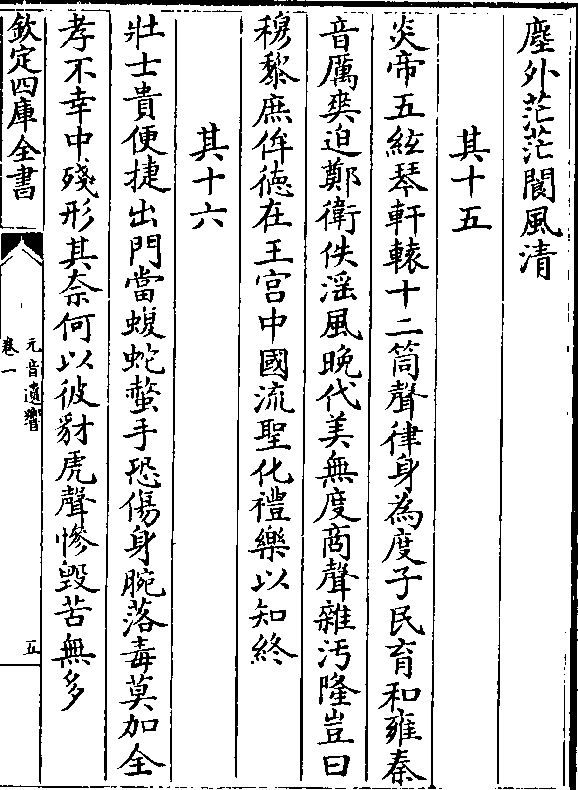 塵外茫茫閬風清
其十五
炎帝五絃琴軒轅十二筒聲律身為度子民育和雍秦
音厲奕迫鄭衛佚淫風晚代美無度商聲雜汚隆豈曰
穆黎庶侔德在王宫中國流聖化禮樂以知終
其十六
壯士貴便捷出門當蝮蛇螫手恐傷身腕落毒莫加全
孝不幸中殘形其奈何以彼豺虎聲慘毀苦無多
欽定四庫全書
元音遺響
卷一
五